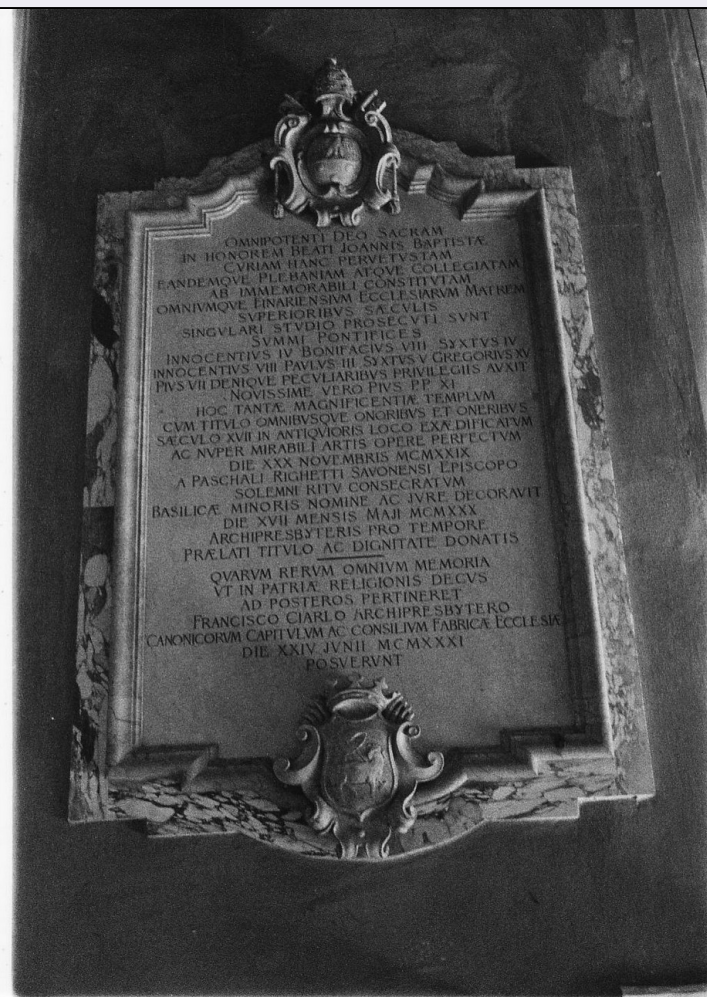 OMNIPOTENTI DEO SACRAM
IN HONOREM BEATI JOANNIS BAPTISTÆ
CVRIAM HANC PERVETVSTAM
EANDEMQVE PLEBANIAM ATQVE COLLEGIATAM
AB IMMEMORABILI CONSTITVTAM
OMNIVMQVE FINARIENSIVM ECCLESIARVM MATREM
SVPERIORIBVS SÆCVLIS
SINGVLARI STVDIO PROSECVTI SVNT
SVMMI PONTIFICES
INNOCENTIVS IV BONIFACIVS VIII SYXTVS IV
INNOCENTIVS VIII PAVLVS III SYXTVS V GREGORIVS XV
PIVS VII DENIQVE PECVLIARIBVS PRIVILEGIIS AVXIT
NOVISSIME VERO PIVS P.P XI
HOC TANTÆ MAGNIFICENTIÆ TEMPLVM
CVM TITVLO OMNIBVSQVE ONORIBVS ET ONERIBVS
SÆCVLO XVII IN ANTIQVIORIS LOCO EXÆDIFICATVM
AC NVPER MIRABILI ARTIS OPERE PERFECTVM
DIE XXX NOVEMBRIS MCMXXIX
A PASCHALI RIGHETTI SAVONENSI EPISCOPO
SOLEMNI RITV CONSECRATVM
BASILICÆ MINORIS NOMINE AC JVRE DECORAVIT
DIE XVII MENSIS MAJI MCMXXX
ARCHIPRESBYTERIS PRO TEMPORE
PRÆLATI TITVLO AC DIGNITATE DONATIS
QVARVM RERVM OMNIVM MEMORIA
VT IN PATRIÆ RELIGIONIS DECVS
AD POSTEROS PERTINERET
FRANCISCO CIARLO ARCHIPRESBYTERO
CANONICORVM CAPITVLVM AC CONSILIVM FABRICÆ ECCLESIÆ
DIE XXIV JVNII MCMXXXI
POSVERVNT